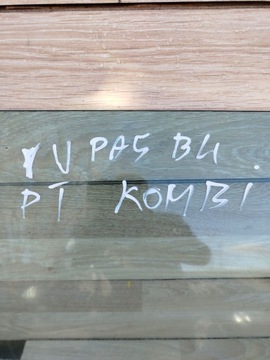 YU PAS BU
PT KOMBI